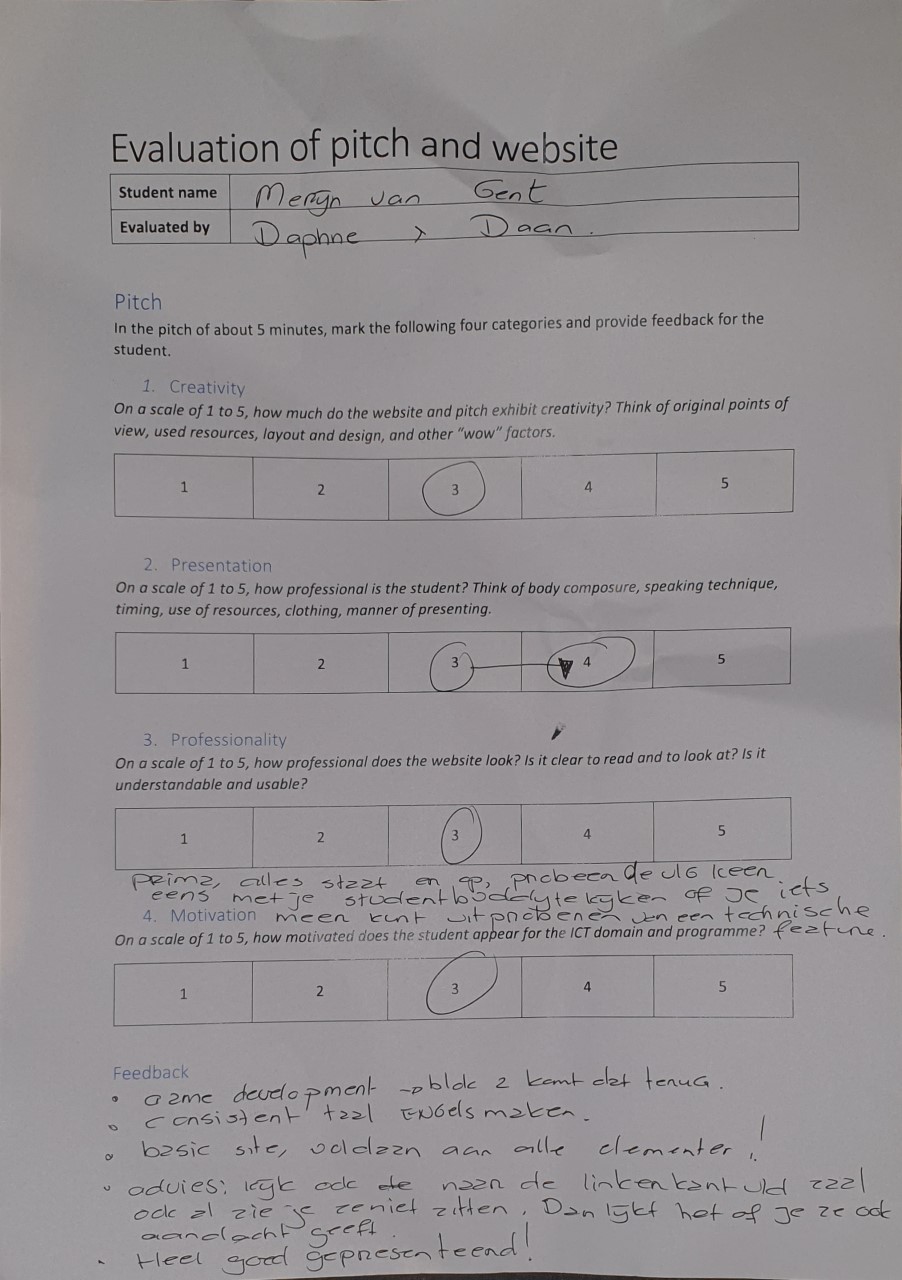 Evaluation of pitch and website
Student name Merijn van Gent
Evaluated by Daphne > Daan.
Pitch
In the pitch of about 5 minutes, mark the following four categories and provide feedback for the
student.
1. Creativity
On a scale of 1 to 5, how much do the website and pitch exhibit creativity? Think of original points of
view, used resources, layout and design, and other "wow" factors.
1 2 3 4 5
2. Presentation
On a scale of 1 to 5, how professional is the student? Think of body composure, speaking technique,
timing, use of resources, clothing, manner of presenting.
1 2 3 4 5
3. Professionality
On a scale of 1 to 5, how professional does the website look? Is it clear to read and to look at? Is it
understandable and usable?
1 2 3 4 5
prima, alles staat er op, probeer de vlg keer
eens met je studentbuddy te kijken of je iets
4. Motivation meer kunt uitproberen van een technische
On a scale of 1 to 5, how motivated does the student appear for the ICT domain and programme? feature.
1 2 3 4 5
Feedback
• game development → blok 2 komt dat terug.
• consistent taal ENGels maken.
• basic site, voldaan aan alle elementen!
• advies: kijk ook de naar de linkerkant vld zaal
ook al zie je ze niet zitten. Dan lijkt het of je ze ook
aandacht geeft.
• Heel goed gepresenteerd!